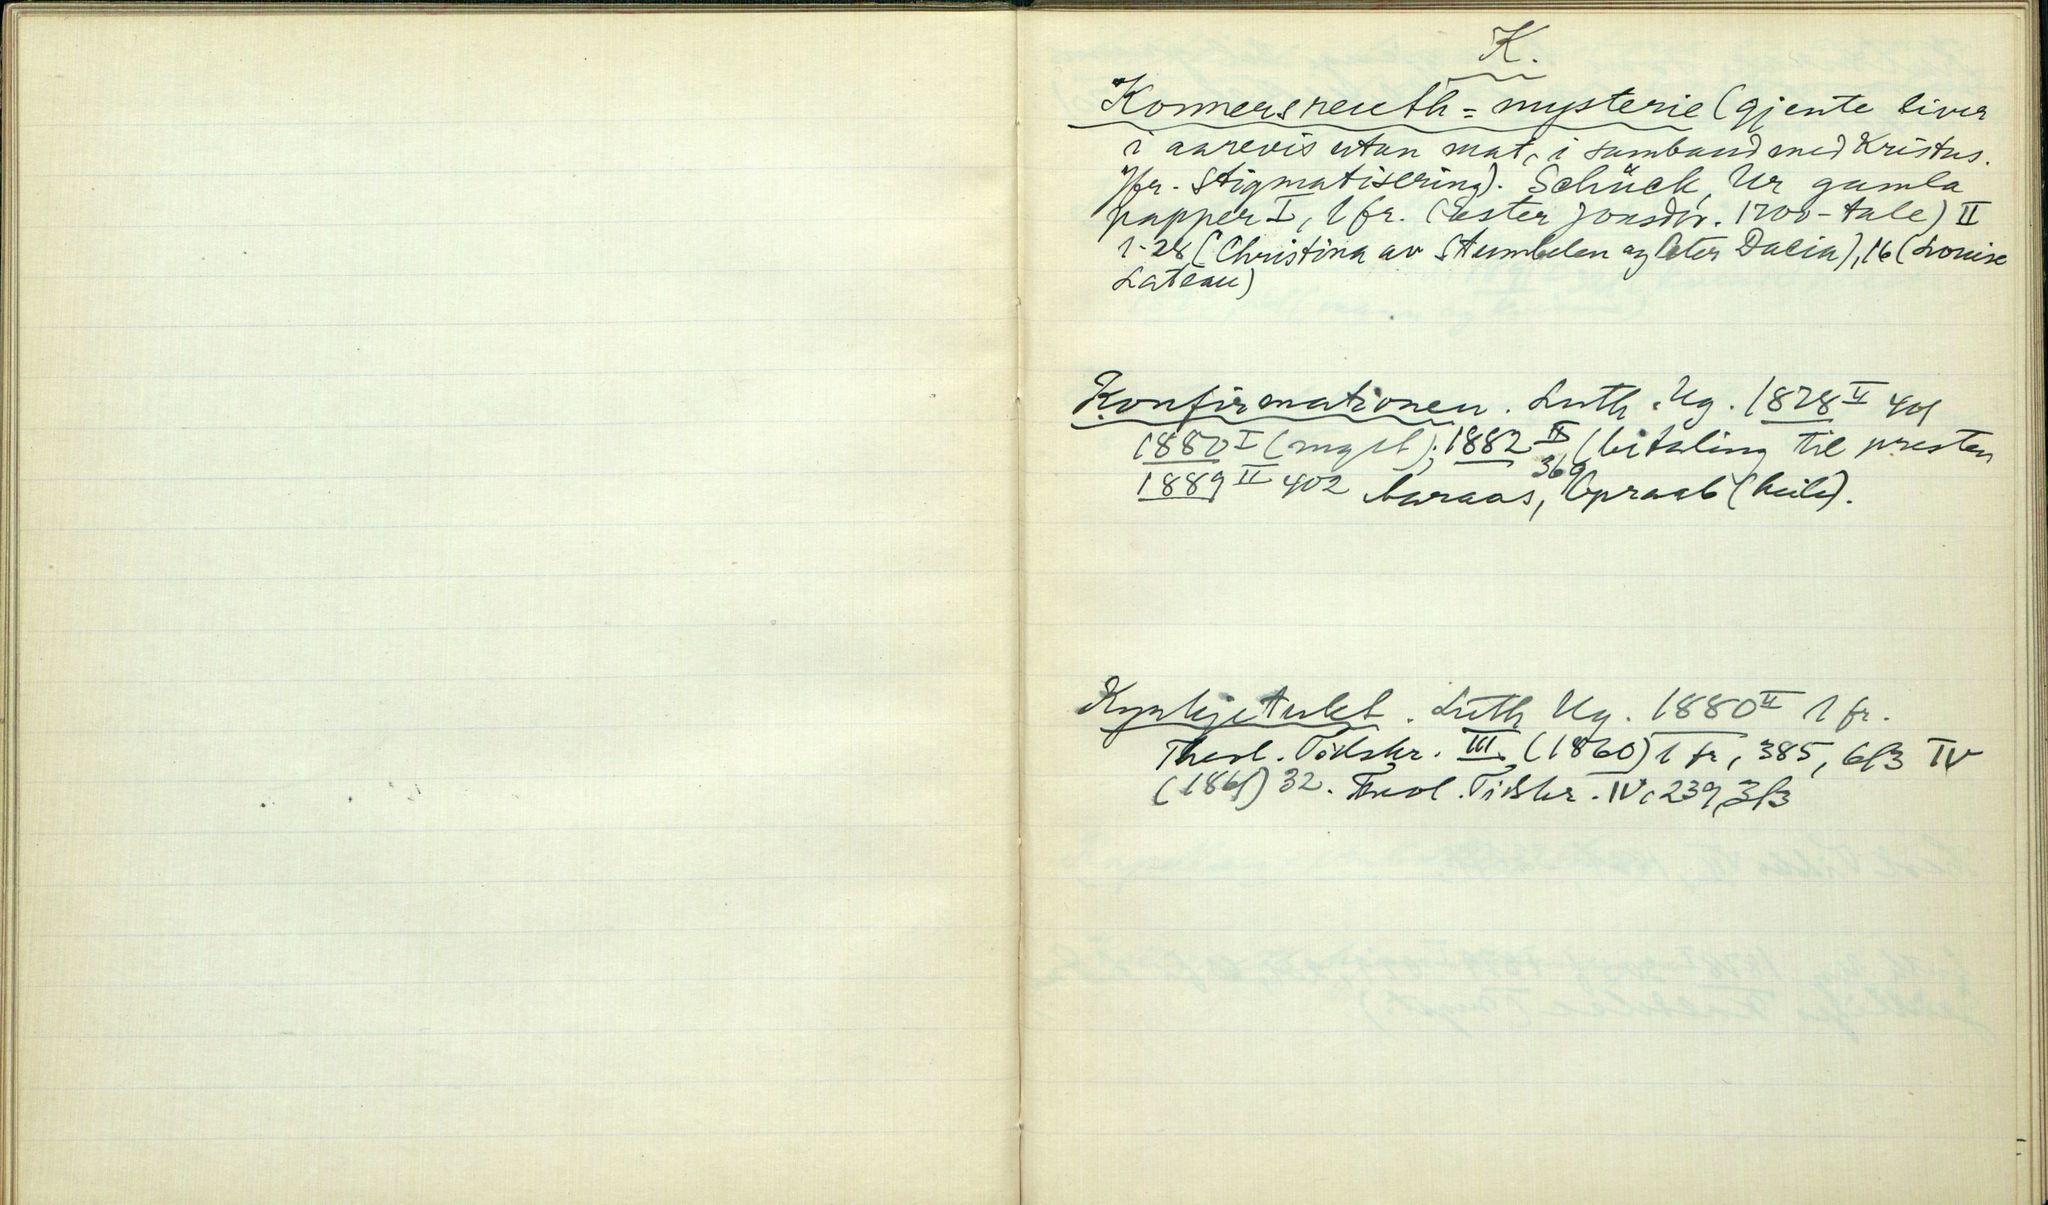 K.
Konnersreuth-mysterie (gjente liver
i aarevis utan mat, i samband med Kristus.
Jfr. Stigmatisering). Schück, Ur gamla
papper I, 1 fr. (Ester Jonsdtr. 1700-tale) II
1-28 (Christina av Stumbelen og Peter Dacia), 16 (Louise
Lateau)
Konfirmationen. Luth. Ug. 1878 II 401
1880 I (mykt); 1882 II 369 (betaling til presten
1889 II 402 Aaraas, Opraab (heile).
Kyrkjetukt. Luth Ug. 1880 II 1 fr.
Theol. Tidskr. III (1860) 1 fr, 385, 613 IV
(1861) 32. Theol. Tidskr. IV, 239, 313